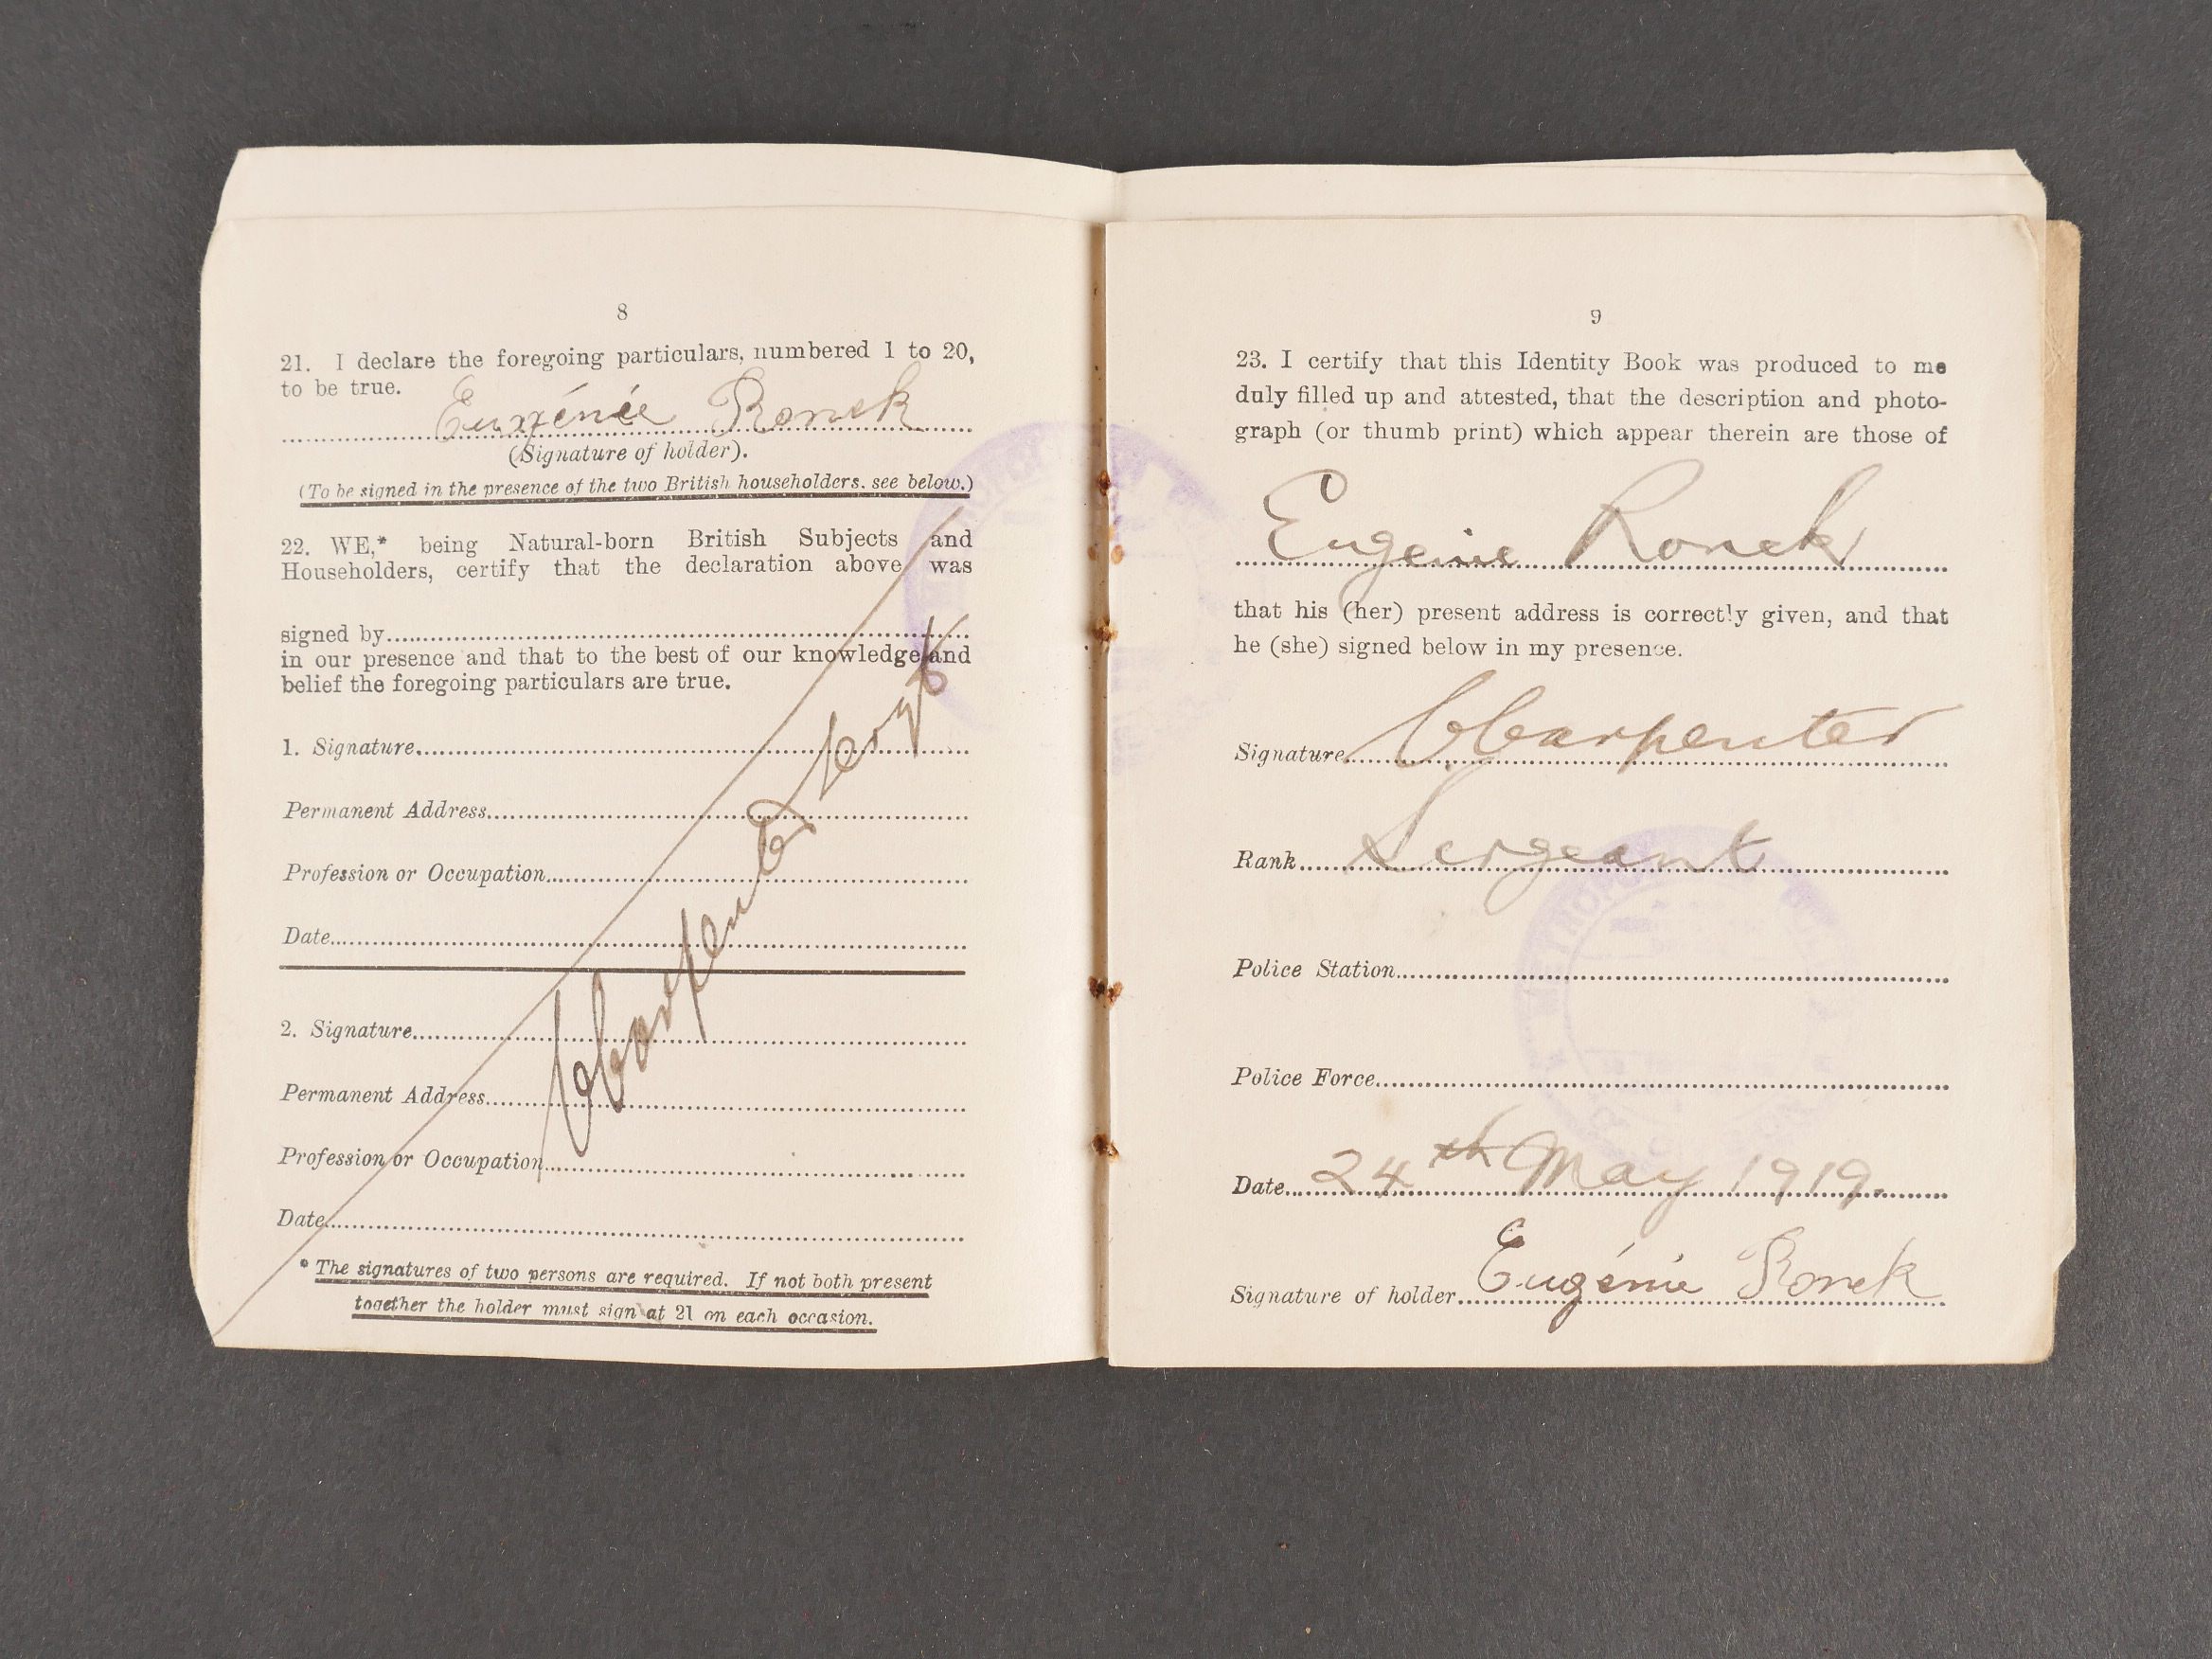 8
21. I declare the foregoing particulars, numbered 1 to 20,
to be true.
Eugénie Ronek
(Signature of holder).
(To be signed in the presence of the two British householders. see below.)
22. WE,* being Natural-born British Subjects and
Householders, certify that the declaration above was
signed by
in our presence and that to the best of our knowledge and
belief the foregoing particulars are true.
1. Signature
Permanent Address
Profession or Occupation
Date
2. Signature
Permanent Address
Profession or Occupation
Date
CCarpenter Sergt
* The signatures of two persons are required. If not both present
together the holder must sign at 21 on each occasion.
9
23. I certify that this Identity Book was produced to me
duly filled up and attested, that the description and photo-
graph (or thumb print) which appear therein are those of
Eugenie Ronek
that his (her) present address is correctly given, and that
he (she) signed below in my presence.
Signature CCarpenter
Rank Sergeant
Police Station
Police Force
Date 24th May 1919.
Signature of holder Eugénie Ronek